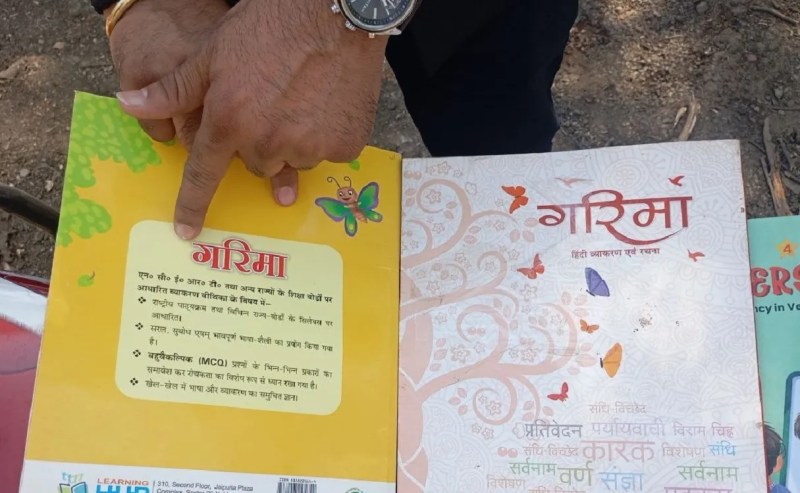 गरिमा
एन० सी० ई० आर० टी० तथा अन्य राज्यों के शिक्षा बोर्डों पर
आधारित व्याकरण वीथिका के विषय में—
❖ राष्ट्रीय पाठ्यक्रम तथा विभिन्न राज्य-बोर्डों के सिलेबस पर
आधारित।
❖ सरल, सुबोध एवम् भावपूर्ण भाषा-शैली का प्रयोग किया गया
है।
❖ बहुवैकल्पिक (MCQ) प्रश्नों के भिन्न-भिन्न प्रकारों का
समावेश कर रोचकता का विशेष रूप से ध्यान रखा गया है।
❖ खेल-खेल में भाषा और व्याकरण का समुचित ज्ञान।
LEARNING
HUB
310, Second Floor, Jaipuria Plaza
गरिमा
हिंदी व्याकरण एवं रचना
संधि-विच्छेद
प्रतिवेदन पर्यायवाची विराम चिह्न
संधि-विच्छेद कारक विशेषण संधि
सर्वनाम वर्ण संज्ञा सर्वनाम
विशेषण
4
ERS
ency in Vo